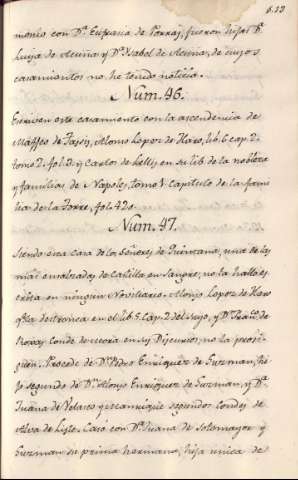 monio con D.ª Eufracia de Porras, fueron hijas D.ª
Luisa de Acuña y D.ª Isabel de Acuña, de cuyos
casamientos no he tenido noticia.
Num. 46.
Escriven este casamiento con la ascendencia de
Alonso Lopez de Haro, lib. 6 cap. 2.
tomo 2. fol. 2. y Carlos de Lellis en su lib. de la nobleza
y familias de Napoles, tomo 1 capitulo de la fami
lia de la Torre, fol. 420.
Num. 47.
Siendo esta casa de los Señores de Quintana, una de las
mas ensalzadas de Castilla en Sangre, no la hallo es
crita en ningun Noviliario. Alonso Lopez de Haro
en el lib. 5. Cap. 2 del suyo, y D.n Fran.co de
Conde de en su Discurso, no la prosi
guen. Procede de D.n Pedro Enriquez de Guzman, hi
jo segundo de D.n Alonso Enriquez de Guzman, y D.ª
Juana de Velasco y segundos Condes de
Alva de Liste. Casó con D.ª Juana de Sotomayor y
Guzman su prima hermana, hija unica de